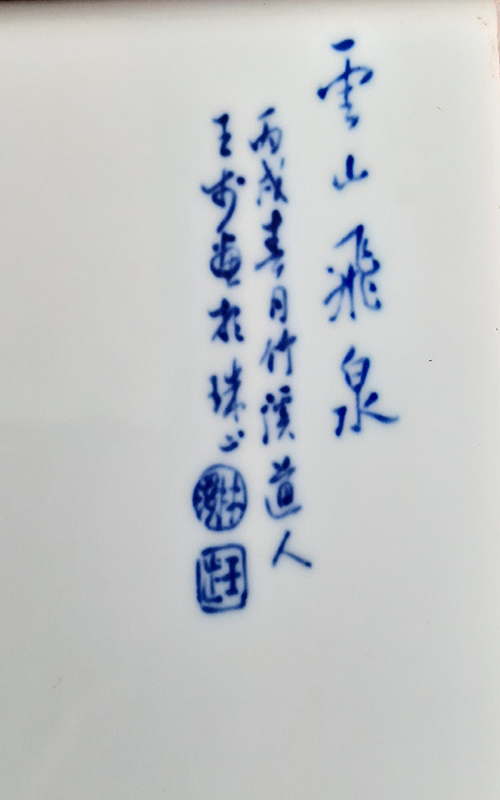 雲山飛泉
丙戌春月竹溪道人
王步畫於珠山